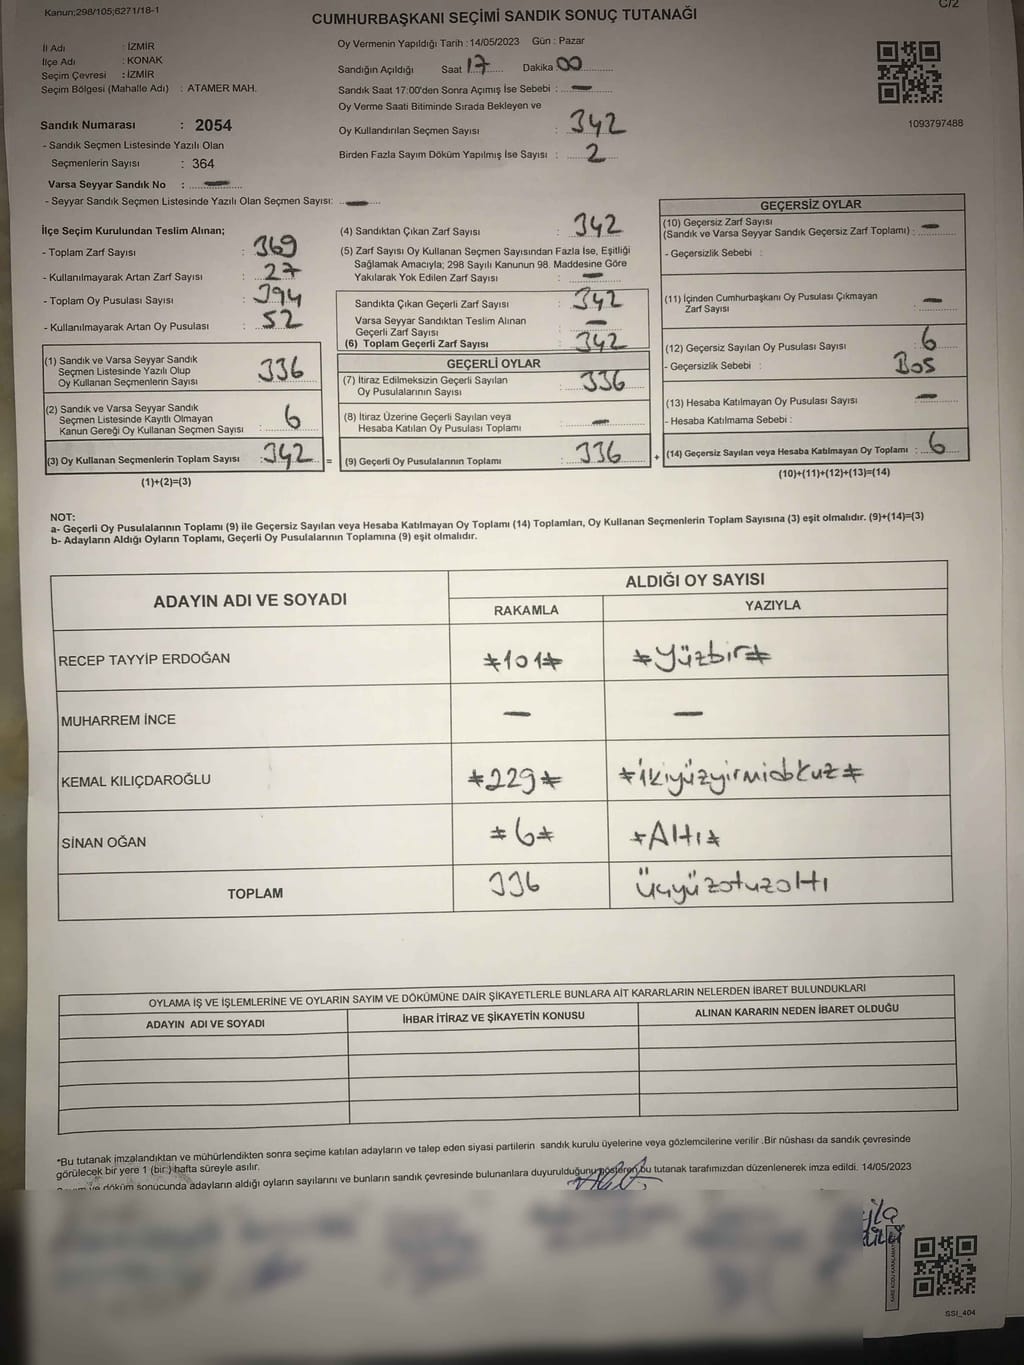 Kanun:298/105;6271/18-1
C/2
CUMHURBAŞKANI SEÇİMİ SANDIK SONUÇ TUTANAĞI
İl Adı : İZMİR
İlçe Adı : KONAK
Seçim Çevresi : İZMİR
Seçim Bölgesi (Mahalle Adı) : ATAMER MAH.
Sandık Numarası : 2054
- Sandık Seçmen Listesinde Yazılı Olan
Seçmenlerin Sayısı : 364
Varsa Seyyar Sandık No : —
- Seyyar Sandık Seçmen Listesinde Yazılı Olan Seçmen Sayısı: —
Oy Vermenin Yapıldığı Tarih : 14/05/2023 Gün : Pazar
Sandığın Açıldığı Saat 17 Dakika 00
Sandık Saat 17:00'den Sonra Açımış İse Sebebi : —
Oy Verme Saati Bitiminde Sırada Bekleyen ve
Oy Kullandırılan Seçmen Sayısı : 342
Birden Fazla Sayım Döküm Yapılmış İse Sayısı : 2
1093797488
İlçe Seçim Kurulundan Teslim Alınan;
- Toplam Zarf Sayısı : 369
- Kullanılmayarak Artan Zarf Sayısı : 27
- Toplam Oy Pusulası Sayısı : 394
- Kullanılmayarak Artan Oy Pusulası : 52
(1) Sandık ve Varsa Seyyar Sandık
Seçmen Listesinde Yazılı Olup
Oy Kullanan Seçmenlerin Sayısı : 336
(2) Sandık ve Varsa Seyyar Sandık
Seçmen Listesinde Kayıtlı Olmayan
Kanun Gereği Oy Kullanan Seçmen Sayısı : 6
(3) Oy Kullanan Seçmenlerin Toplam Sayısı : 342 =
(1)+(2)=(3)
(4) Sandıktan Çıkan Zarf Sayısı : 342
(5) Zarf Sayısı Oy Kullanan Seçmen Sayısından Fazla İse, Eşitliği
Sağlamak Amacıyla; 298 Sayılı Kanunun 98. Maddesine Göre
Yakılarak Yok Edilen Zarf Sayısı : —
Sandıkta Çıkan Geçerli Zarf Sayısı : 342
Varsa Seyyar Sandıktan Teslim Alınan
Geçerli Zarf Sayısı : —
(6) Toplam Geçerli Zarf Sayısı : 342
GEÇERLİ OYLAR
(7) İtiraz Edilmeksizin Geçerli Sayılan
Oy Pusulalarının Sayısı : 336
(8) İtiraz Üzerine Geçerli Sayılan veya
Hesaba Katılan Oy Pusulası Toplamı : —
(9) Geçerli Oy Pusulalarının Toplamı : 336 +
GEÇERSİZ OYLAR
(10) Geçersiz Zarf Sayısı
(Sandık ve Varsa Seyyar Sandık Geçersiz Zarf Toplamı) : —
- Geçersizlik Sebebi :
(11) İçinden Cumhurbaşkanı Oy Pusulası Çıkmayan
Zarf Sayısı : —
(12) Geçersiz Sayılan Oy Pusulası Sayısı : 6
- Geçersizlik Sebebi : BOŞ
(13) Hesaba Katılmayan Oy Pusulası Sayısı : —
- Hesaba Katılmama Sebebi :
(14) Geçersiz Sayılan veya Hesaba Katılmayan Oy Toplamı : 6
(10)+(11)+(12)+(13)=(14)
NOT:
a- Geçerli Oy Pusulalarının Toplamı (9) ile Geçersiz Sayılan veya Hesaba Katılmayan Oy Toplamı (14) Toplamları, Oy Kullanan Seçmenlerin Toplam Sayısına (3) eşit olmalıdır. (9)+(14)=(3)
b- Adayların Aldığı Oyların Toplamı, Geçerli Oy Pusulalarının Toplamına (9) eşit olmalıdır.
ADAYIN ADI VE SOYADI
ALDIĞI OY SAYISI
RAKAMLA YAZIYLA
RECEP TAYYİP ERDOĞAN *101* *Yüzbir*
MUHARREM İNCE — —
KEMAL KILIÇDAROĞLU *229* *ikiyüzyirmidokuz*
SİNAN OĞAN *6* *Altı*
TOPLAM 336 Üçyüzotuzaltı
OYLAMA İŞ VE İŞLEMLERİNE VE OYLARIN SAYIM VE DÖKÜMÜNE DAİR ŞİKAYETLERLE BUNLARA AİT KARARLARIN NELERDEN İBARET BULUNDUKLARI
ADAYIN ADI VE SOYADI İHBAR İTİRAZ VE ŞİKAYETİN KONUSU ALINAN KARARIN NEDEN İBARET OLDUĞU
*Bu tutanak imzalandıktan ve mühürlendikten sonra seçime katılan adayların ve talep eden siyasi partilerin sandık kurulu üyelerine veya gözlemcilerine verilir .Bir nüshası da sandık çevresinde
görülecek bir yere 1 (bir ) hafta süreyle asılır.
ve döküm sonucunda adayların aldığı oyların sayılarını ve bunların sandık çevresinde bulunanlara duyurulduğunu gösteren bu tutanak tarafımızdan düzenlenerek imza edildi. 14/05/2023
SSI_404